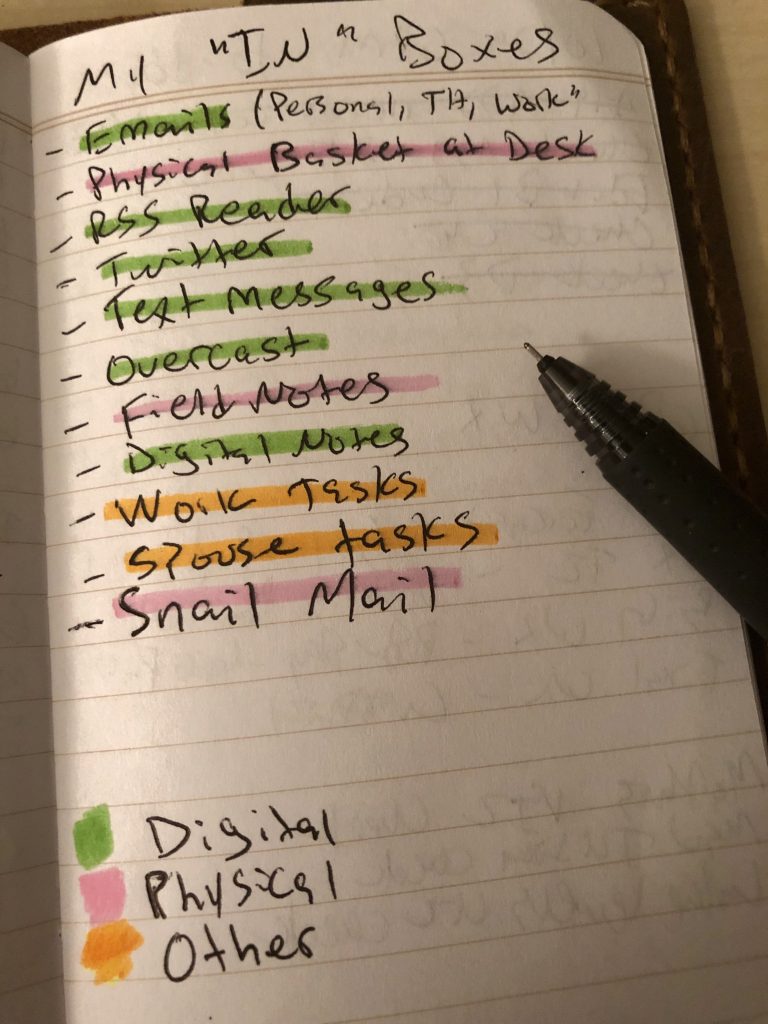 My "IN" Boxes
- Emails (Personal, TH, Work"
- Physical Basket at Desk
- RSS Reader
- Twitter
- Text Messages
- Overcast
- Field Notes
- Digital Notes
- Work Tasks
- Spouse tasks
- Snail Mail
Digital
Physical
Other